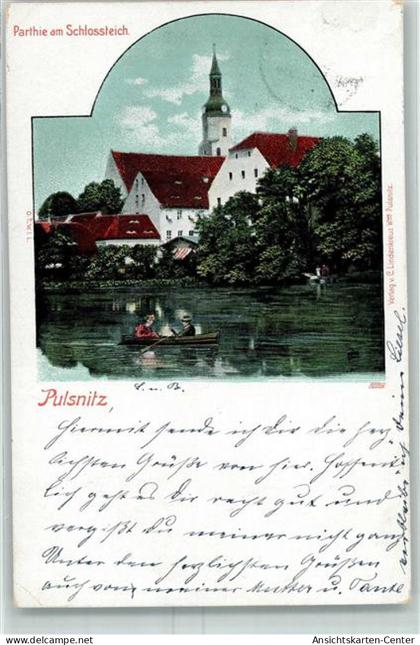 Parthie am Schlossteich.
Verlag v. E. Lindenkreuz Wwe Pulsnitz.
Pulsnitz,
Hiermit sende ich Dir die herz
lichsten Grüße von hier. Hoffent
lich geht es Dir recht gut und
vergißt Du meiner nicht ganz
Unter den herzlichsten Grüßen
auch von meiner Mutter u. Tante
verbleibe ich Dein Liesel.
www.ansichtskarten-center.de Ansichtskarten-Center